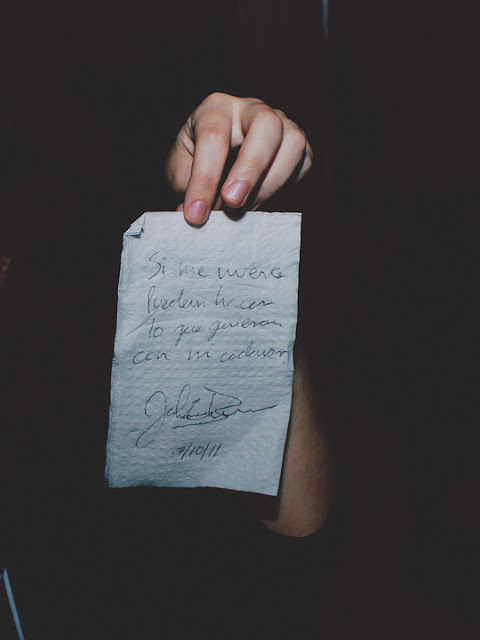 Si me muero
Pueden hacer
lo que quieran
con mi cadaver
7/10/11